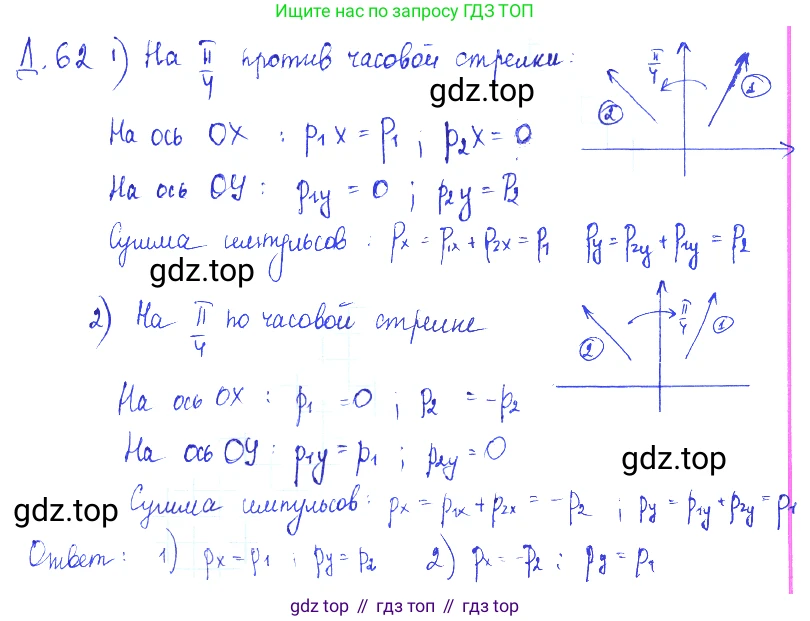 Ищите нас по запросу ГДЗ ТОП
Д.62 1) На π/4 против часовой стрелки:
gdz.top
π/4 2 1
На ось OX : p₁x = p₁ ; p₂x = 0
На ось OY : p₁y = 0 ; p₂y = p₂
Сумма импульсов : Px = p₁x + p₂x = p₁ Py = p₂y + p₁y = p₂
gdz.top
2) На π/4 по часовой стрелке
2 π/4 1
На ось OX : p₁ = 0 ; p₂ = -p₂
На ось OY : p₁y = p₁ ; p₂y = 0
gdz.top
gdz.top
Сумма импульсов : px = p₁x + p₂x = -p₂ ; py = p₁y + p₂y = p₁
Ответ : 1) px = p₁ ; py = p₂ 2) px = -p₂ ; py = p₁
gdz top // гдз топ // gdz top // гдз top